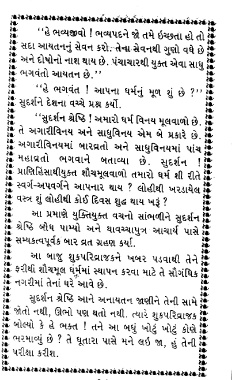 "હે ભવ્યજીવો ! ભવ્યપદને જો તમે ઇચ્છતા હો તો
સદા આયતનનું સેવન કરો. તેના સેવનથી ગુણો વધે છે
અને દોષોનો નાશ થાય છે. પંચાચારથી યુક્ત એવા સાધુ
ભગવંતો આયતન છે."
"હે ભગવંત ! આપના ધર્મનું મૂળ શું છે ?"
સુદર્શને દેશના વચ્ચે પ્રશ્ન કર્યો.
"સુદર્શન શ્રેષ્ઠિ ! અમારો ધર્મ વિનય મૂલવાળો છે.
તે અગારીવિનય અને સાધુવિનય એમ બે પ્રકારે છે.
અગારીવિનયમાં બારવ્રતો અને સાધુવિનયમાં પાંચ
મહાવ્રતો ભગવાને બતાવ્યા છે. સુદર્શન !
પ્રાણિહિંસાથીયુક્ત શૌચમૂલવાળો તમારો ધર્મ શી રીતે
સ્વર્ગ-અપવર્ગને આપનાર થાય ? લોહીથી ખરડાયેલ
વસ્ત્ર શું લોહીથી કોઈ દિવસ શુદ્ધ થાય ખરૂં ?
આ પ્રમાણે યુક્તિયુક્ત વચનો સાંભળીને સુદર્શન
શ્રેષ્ઠિ બોધ પામ્યો અને થાવચ્ચાપુત્ર આચાર્ય પાસે
સમ્યક્ત્વપૂર્વક બાર વ્રત ગ્રહણ કર્યા.
આ બાજુ શુકપરિવ્રાજકને ખબર પડવાથી તેને
ફરીથી શૌચમૂલ ધર્મમાં સ્થાપન કરવા માટે તે સૌગંધિક
નગરીમાં તેનાં ઘરે આવે છે.
સુદર્શન શ્રેષ્ઠિ આને અનાયતન જાણીને તેની સામે
જોતો નથી, ઊભો પણ થતો નથી. ત્યારે શુકપરિવ્રાજક
બોલ્યો કે હે ભક્ત ! તને આ બધું ખોટું ખોટું કોણે
ભરમાવ્યું છે ? તે ધૂતારા પાસે મને લઇ જા, હું તેની
પરીક્ષા કરીશ.